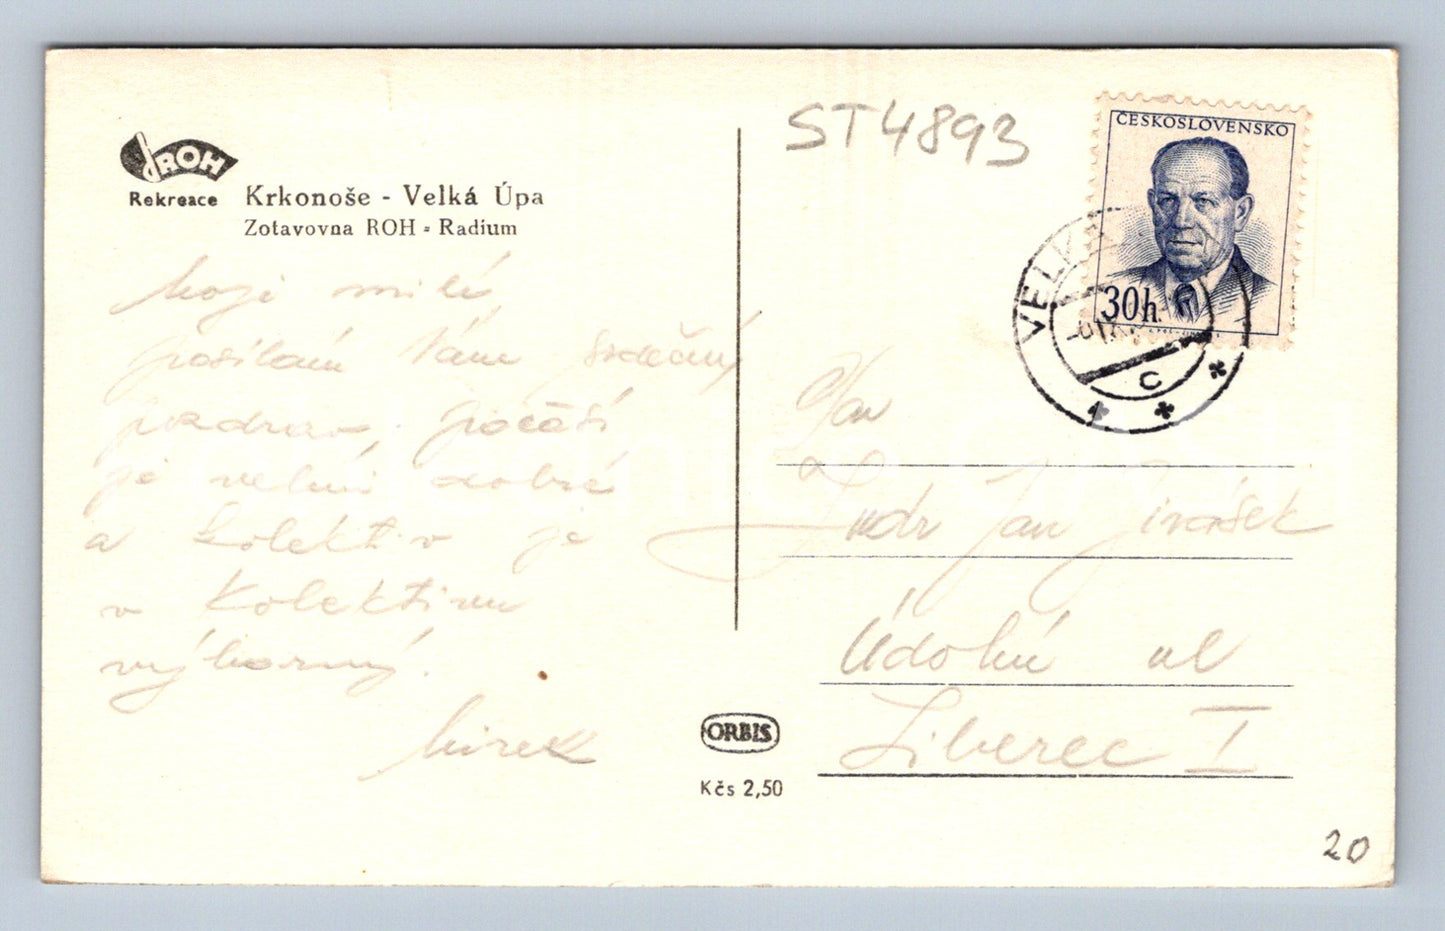 ROH
Rekreace
Krkonoše - Velká Úpa
Zotavovna ROH - Radium
moji milí
posílám Vám srdečný
pozdrav, počasí
je velmi dobré
a kolektiv je
v kolektivu
výborný.
Mirek
ORBIS
Kčs 2,50
ST4893
ČESKOSLOVENSKO
30h
VELKÁ
C
Jan Jirásek
Údolní ul
Liberec I
20